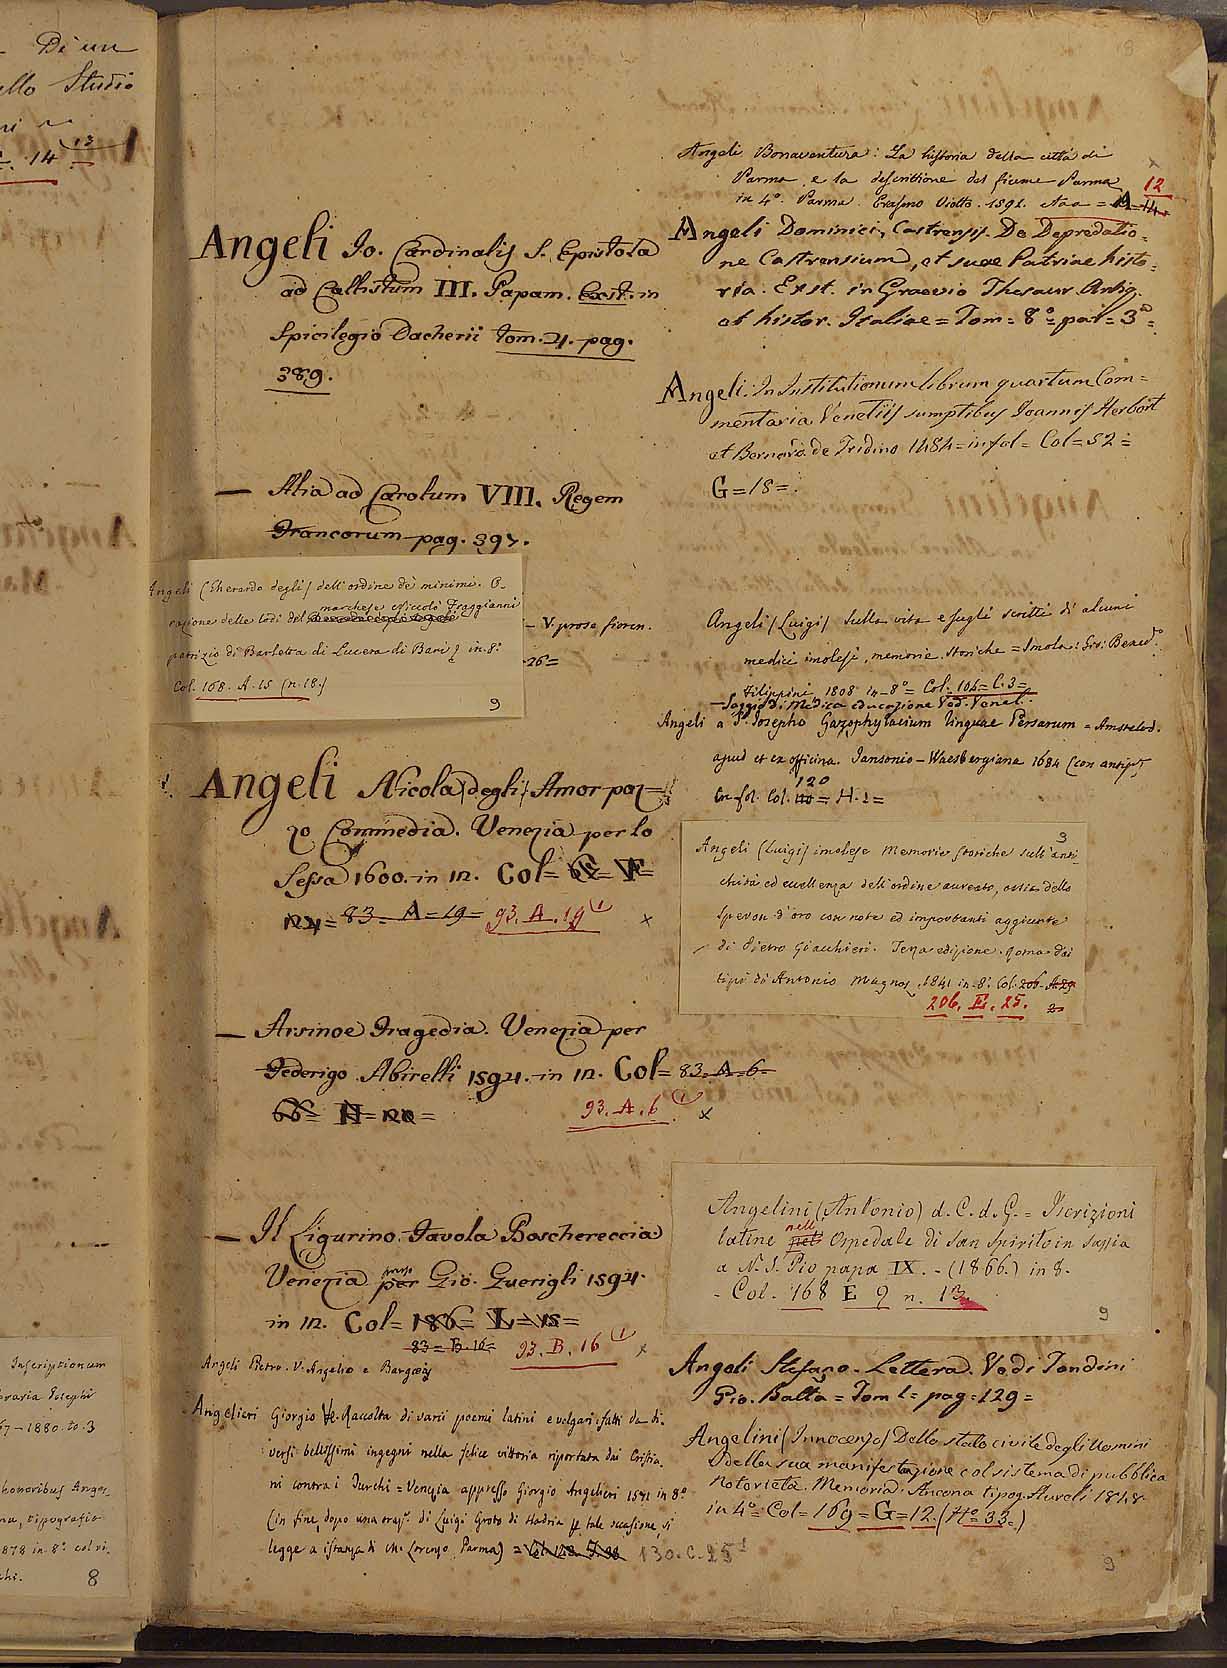 Di un
Studio
14 13
8
Angeli Jo. Cardinalis S. Epistola
ad Callistum III. Papam. Exst. in
Spicilegio Dacherii tom. 21. pag.
389.
— Alia ad Carolum VIII. Regem
Francorum pag. 397.
Angeli (Gherardo degli) dell'ordine de' minimi. O-
marchese Niccolò Fraggianni
razione delle lodi del
patrizio di Barletta di Lucera di Bari in-8°
Col. 168. A. 15 (n. 18.)
9
— V. prose fioren.
26=
Angeli Nicola (degli) Amor paz=
zo Commedia. Venezia per lo
Sessa 1600. in 12. Col=
83. A=19= 93. A. 19 1 x
— Arsinoe Tragedia. Venezia per
Federigo Abirelli 1594. in 12. Col= 83. A. 6=
66= H= 93. A. 6 1 x
— Il Ligurino. Favola Boschereccia
presso
Venezia per Gio. Guerigli 1594.
in 12. Col= 186= L=15=
83=B. 16= 93. B. 16 1 x
Angeli Pietro. V. Angelio e Bargæus
Angelieri Giorgio Raccolta di varii poemi latini e volgari: fatti da di-
versi bellissimi ingegni nella felice vittoria riportata dai Cristia-
ni contra i Turchi = Venezia appresso Giorgio Angelieri 1571 in 8°
(in fine, dopo una oraz.e di Luigi Groto di Hadria p tale occasione, si
legge a istanza di M. Lorenzo Parma) = 130. C. 25 1
Angeli Bonaventura: La historia della città di
Parma e la descrittione del fiume Parma
in 4°. Parma. Erasmo Viotto. 1591. 12
Angeli Dominici, Castrensis. De Depredatio=
ne Castrensium, et suae Patriae histo=
ria. Exst. in Graevio Thesaur. Antiq.
et histor. Italiae = Tom = 8° = par = 3a =
Angeli. In Institutionum librum quartum Com=
mentaria Venetiis sumptibus Joannis Herbort
et Bernard. de Tridino 1484 = in fol = Col = 52 =
G = 18 = .
Angeli (Luigi) Sulla vita e sugli scritti di alcuni
medici imolesi, memorie storiche = Imola: Gio: Bened.
Filippini 1808 in-8° = Col: 104 = C. 3 =
— Saggio di Medica educazione Ved. Venel.
Angeli a S. Josepho Gazophylacium linguae Persarum = Amstelod.
apud et ex officina. Jansonio-Waesbergiana 1684 (con antip.)
120
in-fol. Col. 110 = H. 1 =
3
Angeli (Luigi) imolese Memorie storiche sull'anti-
chità ed eccellenza dell'ordine aureato, ossia dello
speron d'oro con note ed importanti aggiunte
di Pietro Giacchieri. Terza edizione. Roma dai
tipi di Antonio Magnoz. 1841 in-8°. Col. 206. A. 29
206. E. 25.
Angelini (Antonio) d. C. d. G. = Iscrizioni
nell'
latine nel Ospedale di San Spirito in Sassia
a N. S. Pio papa IX. - (1866.) in 8.
- Col. 168 E 9 n. 13.
9
Angeli Stefano. Lettera. Vedi Tondini
Gio. Batta = Tom 1. = pag = 129 =
Angelini (Innocenzo) Dello stato civile degli Uomini
e della sua manifestazione col sistema di pubblica
Notorietà. Memoria. Ancona tipog. Aureli 1848
in 4° = Col = 169 = G = 12. (N° 33.)
9
Inscriptionum
Josephi
67-1880. to. 3
honoribus Ange-
tipografie
1878 in 8°. col. vi.
8